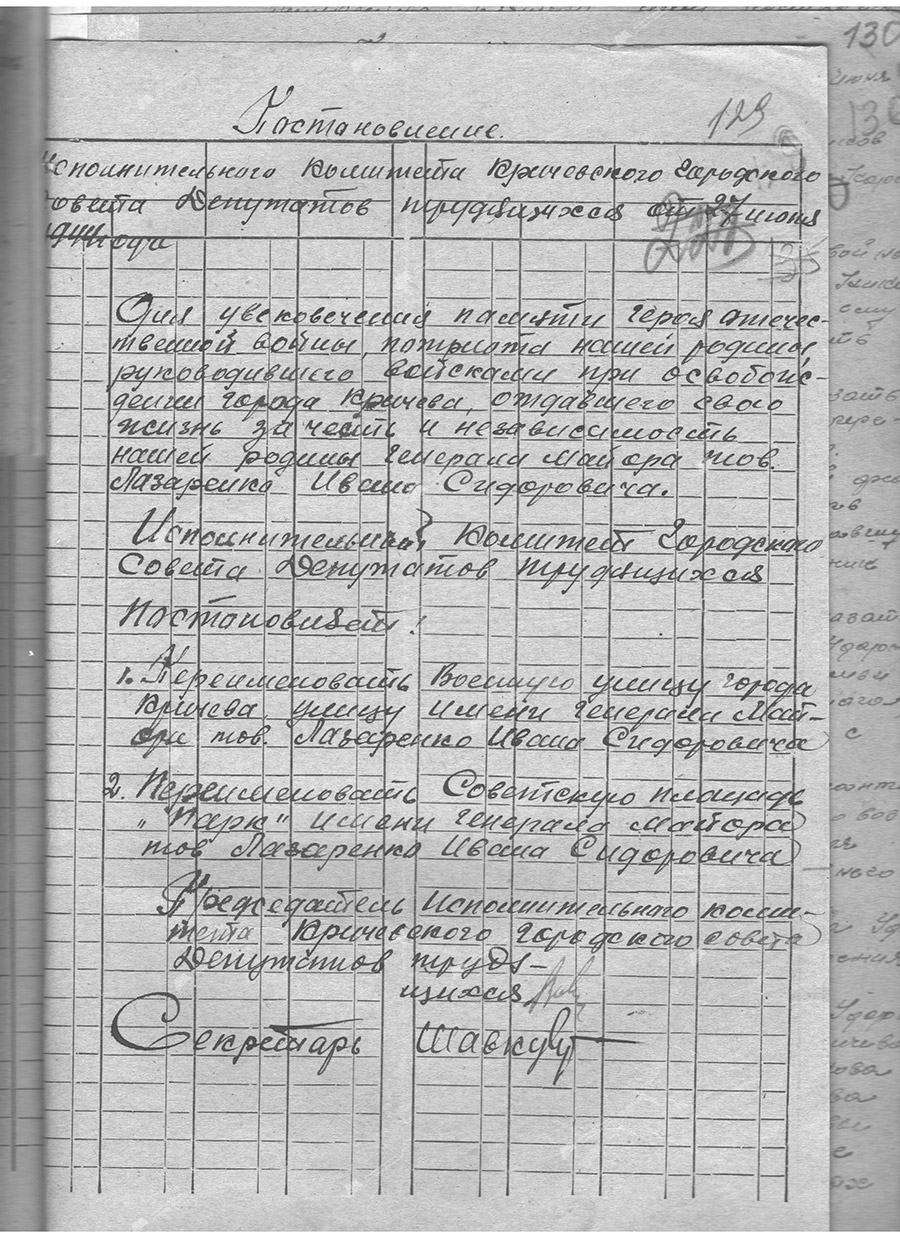 129
Постановление.
Исполнительного Комитета Кричевского Городского
Совета Депутатов трудящихся от 27 июня
1944 года
Для увековечения памяти героя отечес-
твенной войны, потриота нашей родины
руководившего войсками при освобож-
дении города Кричева, отдавшего свою
жизнь за честь и независимость
нашей родины Генерала Майора тов.
Лазаренко Ивана Сидоровича.
Исполнительный Комитет Городского
Совета Депутатов трудящихся
Постановляет:
1. Переименовать Военную улицу города
Кричева, улицу имени Генерала Май-
ора тов. Лазаренко Ивана Сидоровича
2. Переименовать Советскую площадь
"Парк" имени Генерала Майора
тов Лазаренко Ивана Сидоровича
Председатель Исполнительного коми-
тета Кричевского Городского совета
Депутатов трудя-
щихся
Секретарь
130
июня